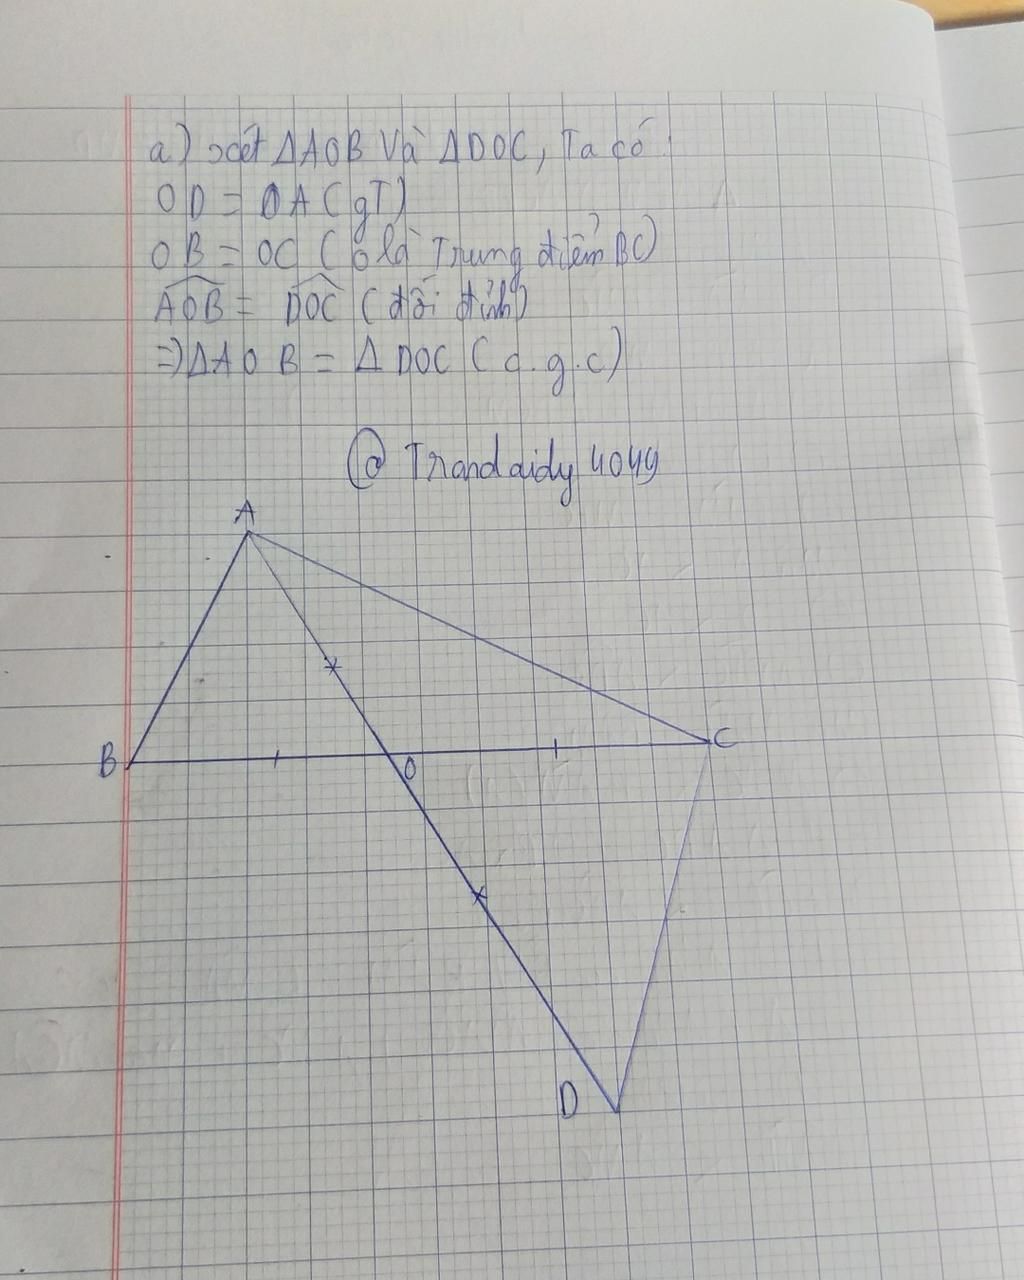 a) xét ΔAOB Và ΔDOC, Ta có:
OD = OA (gT)
OB = OC (O là Trung điểm BC)
AOB = DOC (đối đỉnh)
⇒ΔAOB = ΔDOC (c.g.c)
@ Trandaidy4049
A
B
O
C
D